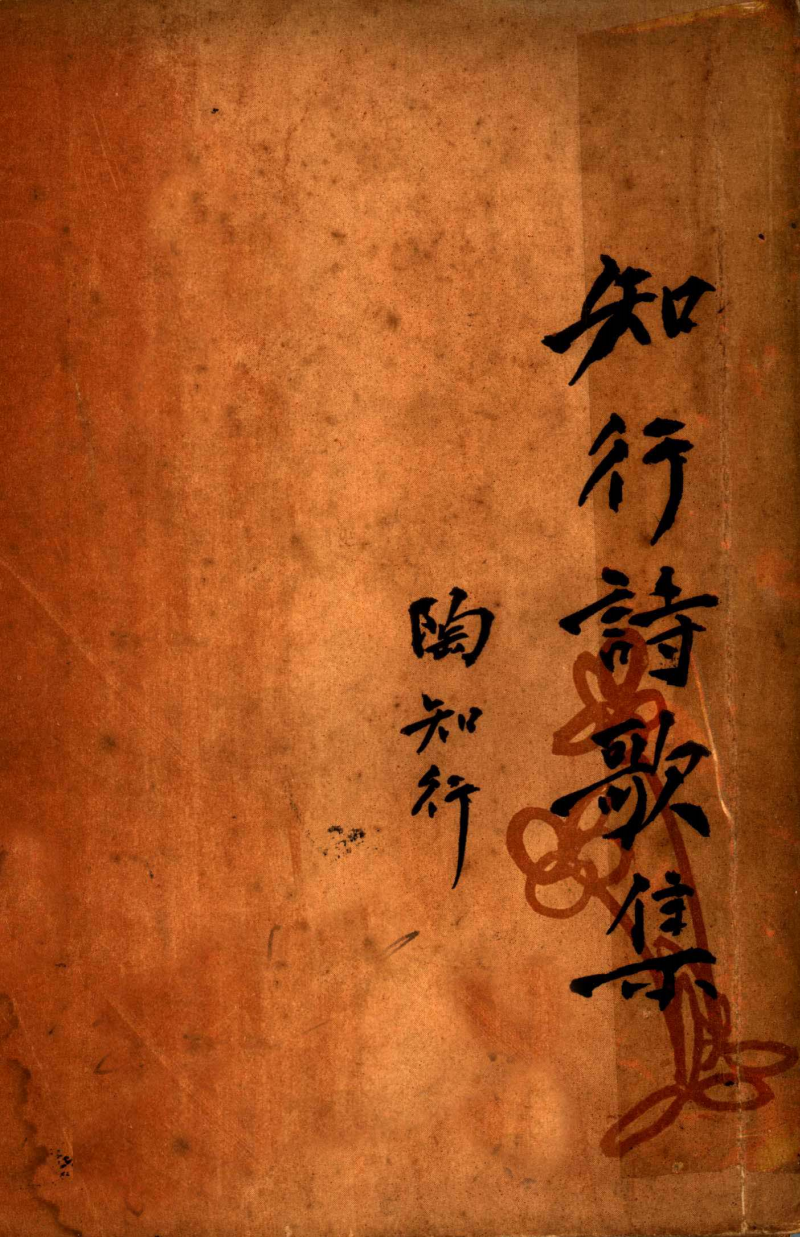 知行詩歌集
陶知行